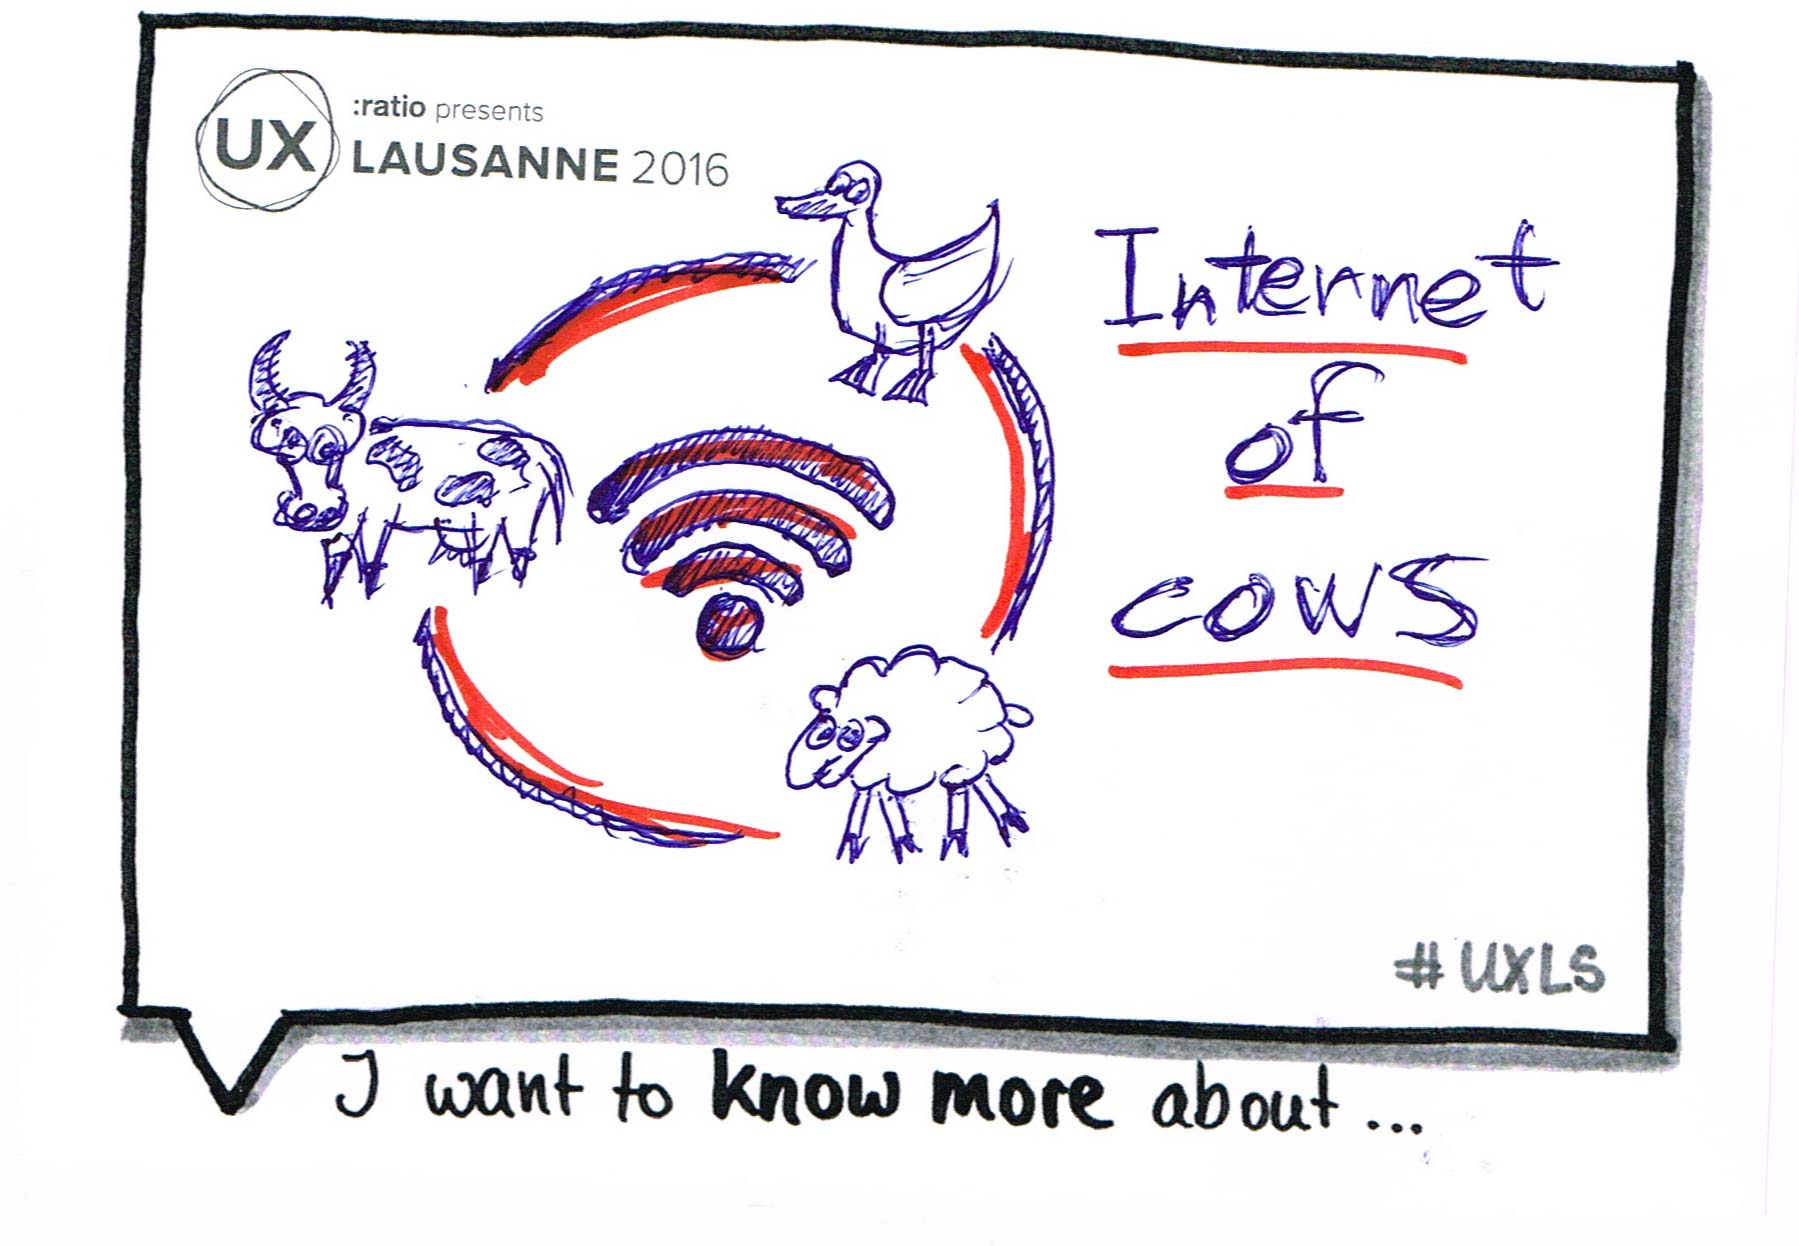 UX
:ratio presents
LAUSANNE 2016
Internet
of
cows
#UXLS
I want to know more about...